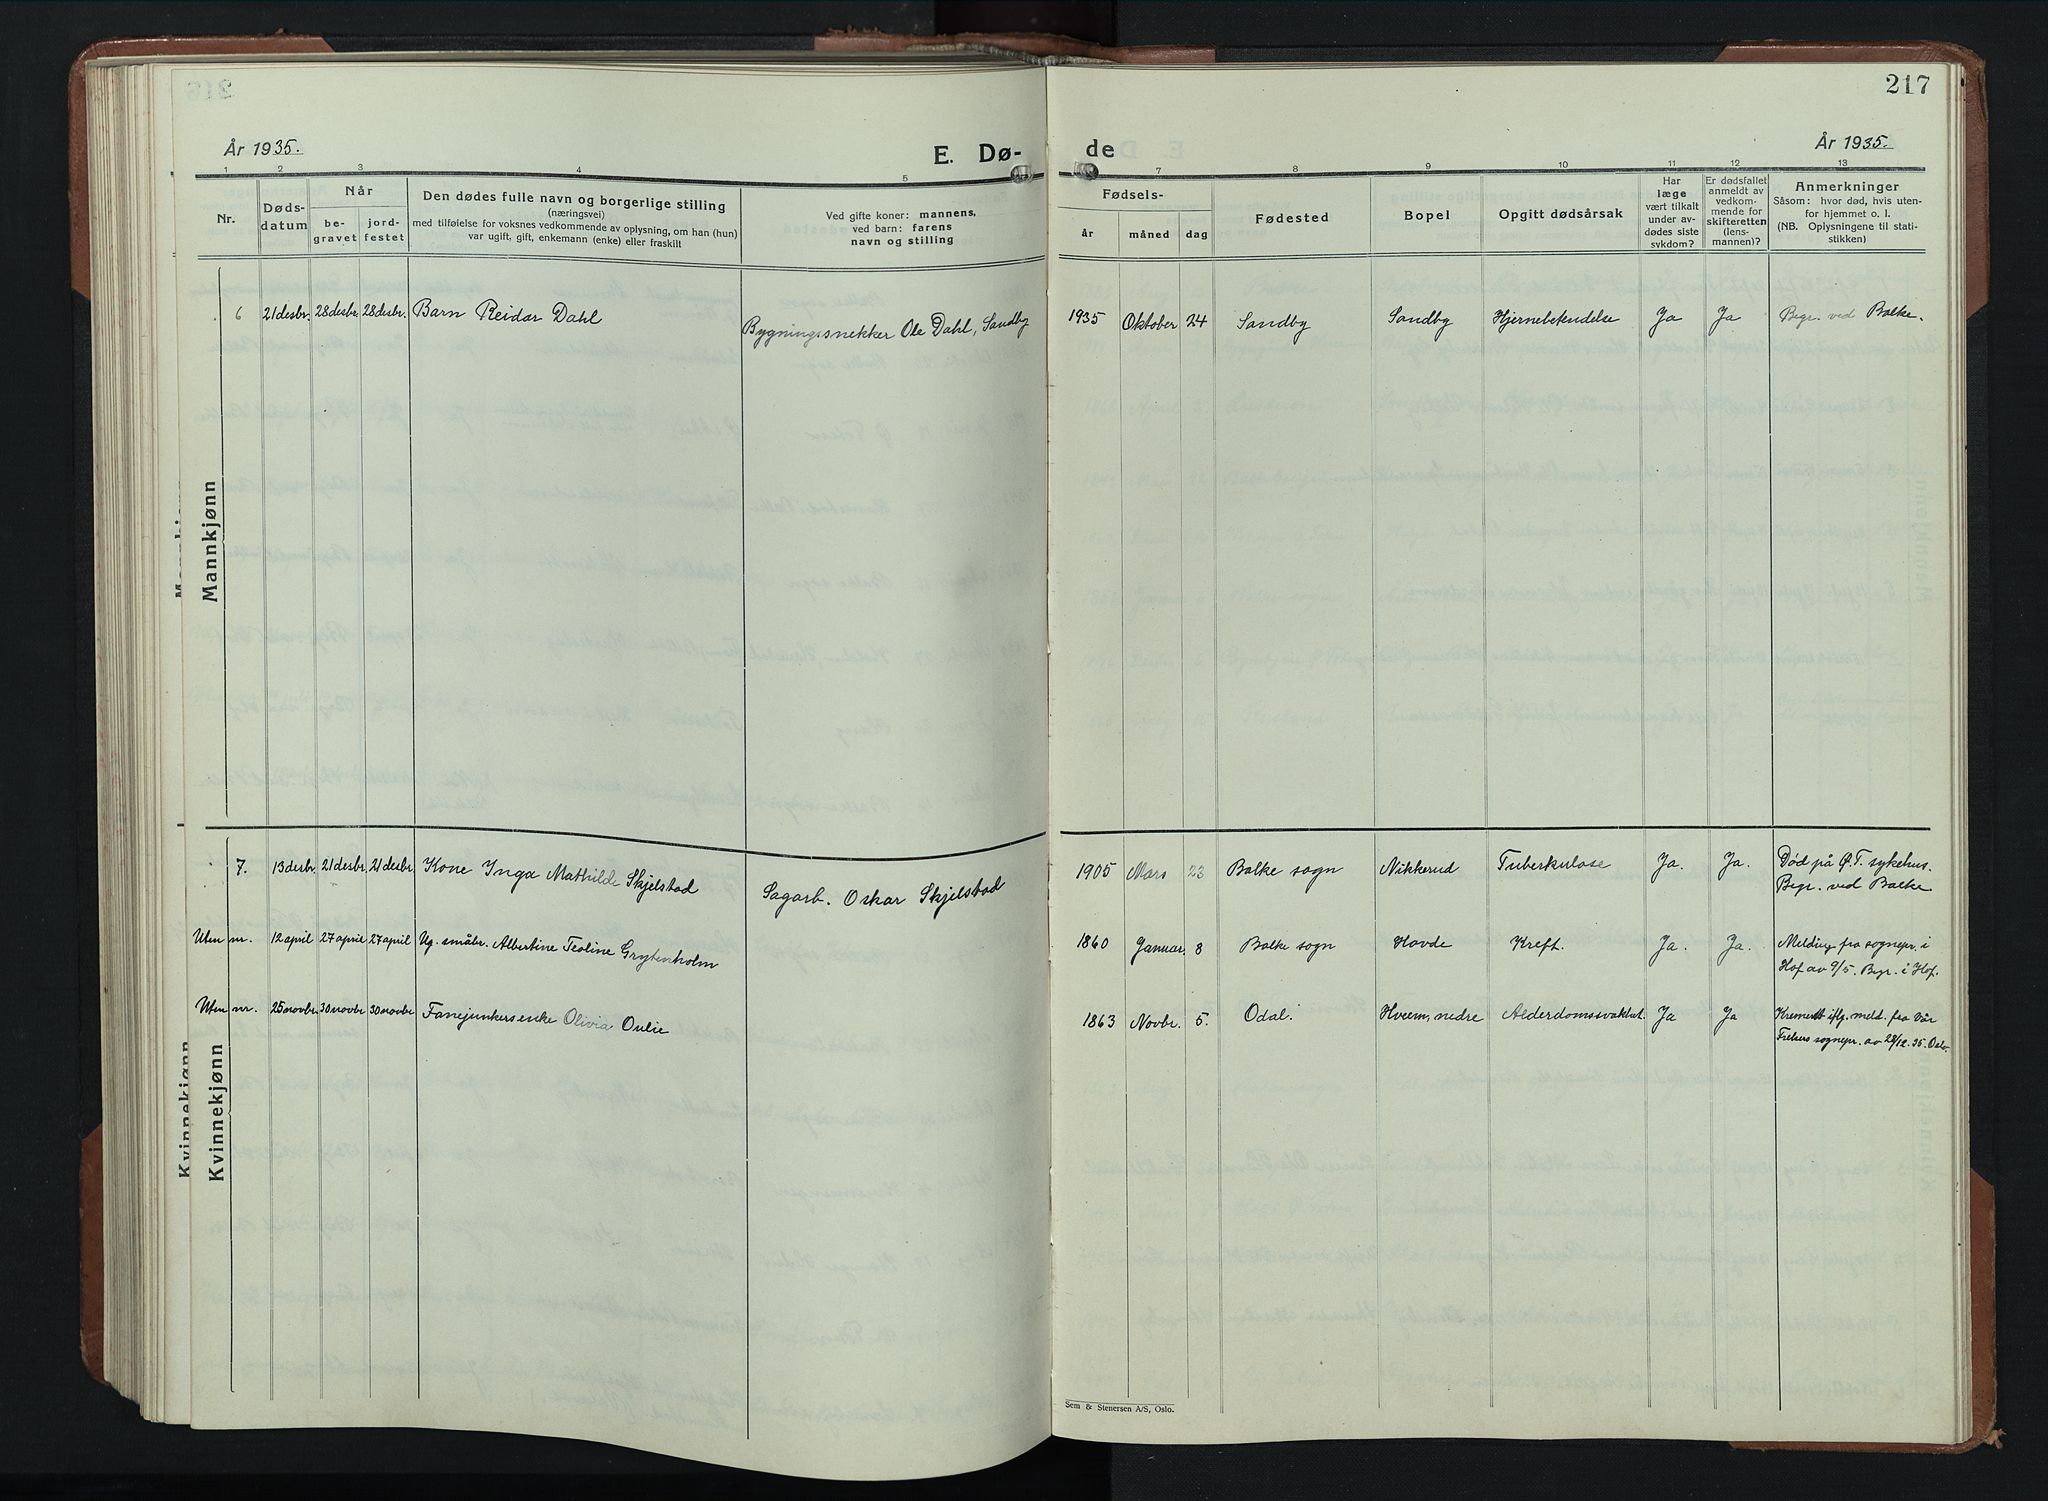 217
År 1935.
E. Dø-
de
År 1935.
1 2 3 4 5 7 8 9 10 11 12 13
Nr.
Døds-
datum
Når
be-
gravet
jord-
festet
Den dødes fulle navn og borgerlige stilling
(næringsvei)
med tilføielse for voksnes vedkommende av oplysning, om han (hun)
var ugift, gift, enkemann (enke) eller fraskilt
Ved gifte koner: mannens,
ved barn: farens
navn og stilling
Fødsels-
år
måned
dag
Fødested
Bopel
Opgitt dødsårsak
Har
læge
vært tilkalt
under av-
dødes siste
sykdom?
Er dødsfallet
anmeldt av
vedkom-
mende for
skifteretten
(lens-
mannen)?
Anmerkninger
Såsom: hvor død, hvis uten-
for hjemmet o. l.
(NB. Oplysningene til stati-
stikken)
Mannkjønn
6 21 desbr. 28 desbr. 28 desbr. Barn Reidar Dahl
Bygningssnekker Ole Dahl, Sandby
1935 Oktober 24 Sandby Sandby Hjernebetendelse Ja Ja Begr. ved Balke.
Kvinnekjønn
7. 13 desbr. 21 desbr. 21 desbr. Kone Inga Mathilde Skjelstad
Sagarb. Oskar Skjelstad
1905 Mars 23 Balke sogn Nikkerud Tuberkulose Ja. Ja. Død på Ø.T. sykehus.
Begr. ved Balke
Uten nr. 12 april 27 april 27 april Ug. småbr. Albertine Teoline Grytenholm
1860 Januar. 8 Balke sogn Hovde Kreft. Ja. Ja. Melding fra sognepr. i
Hof av 9/5. Begr. i Hof.
Uten nr. 25 novbr. 30 novbr 30 novbr Fanejunkersenke Olivia Oulie
1863 Novbr. 5. Odal. Hveem, nedre Alderdomssvakhet. Ja Ja Kremert iflg. meld. fra Vår
Frelsers sognepr. av 28/12. 35. Oslo.
Sem & Stenersen A/S, Oslo.
Kvinnekjønn